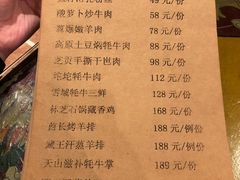 49 元/份
酸萝卜炒牛肉 58 元/份
葱爆嫩羊肉 78 元/份
高原土豆焖牦牛肉 88 元/份
芝灵手撕干巴肉 98 元/份
坨坨牦牛肉 112 元/份
雪域牦牛三鲜 128 元/份
林芝石锅藏香鸡 168 元/份
酋长烤羊排 188 元/例份
藏王汗蒸羊排 188 元/例份
天山滋补牦牛掌 189 元/份